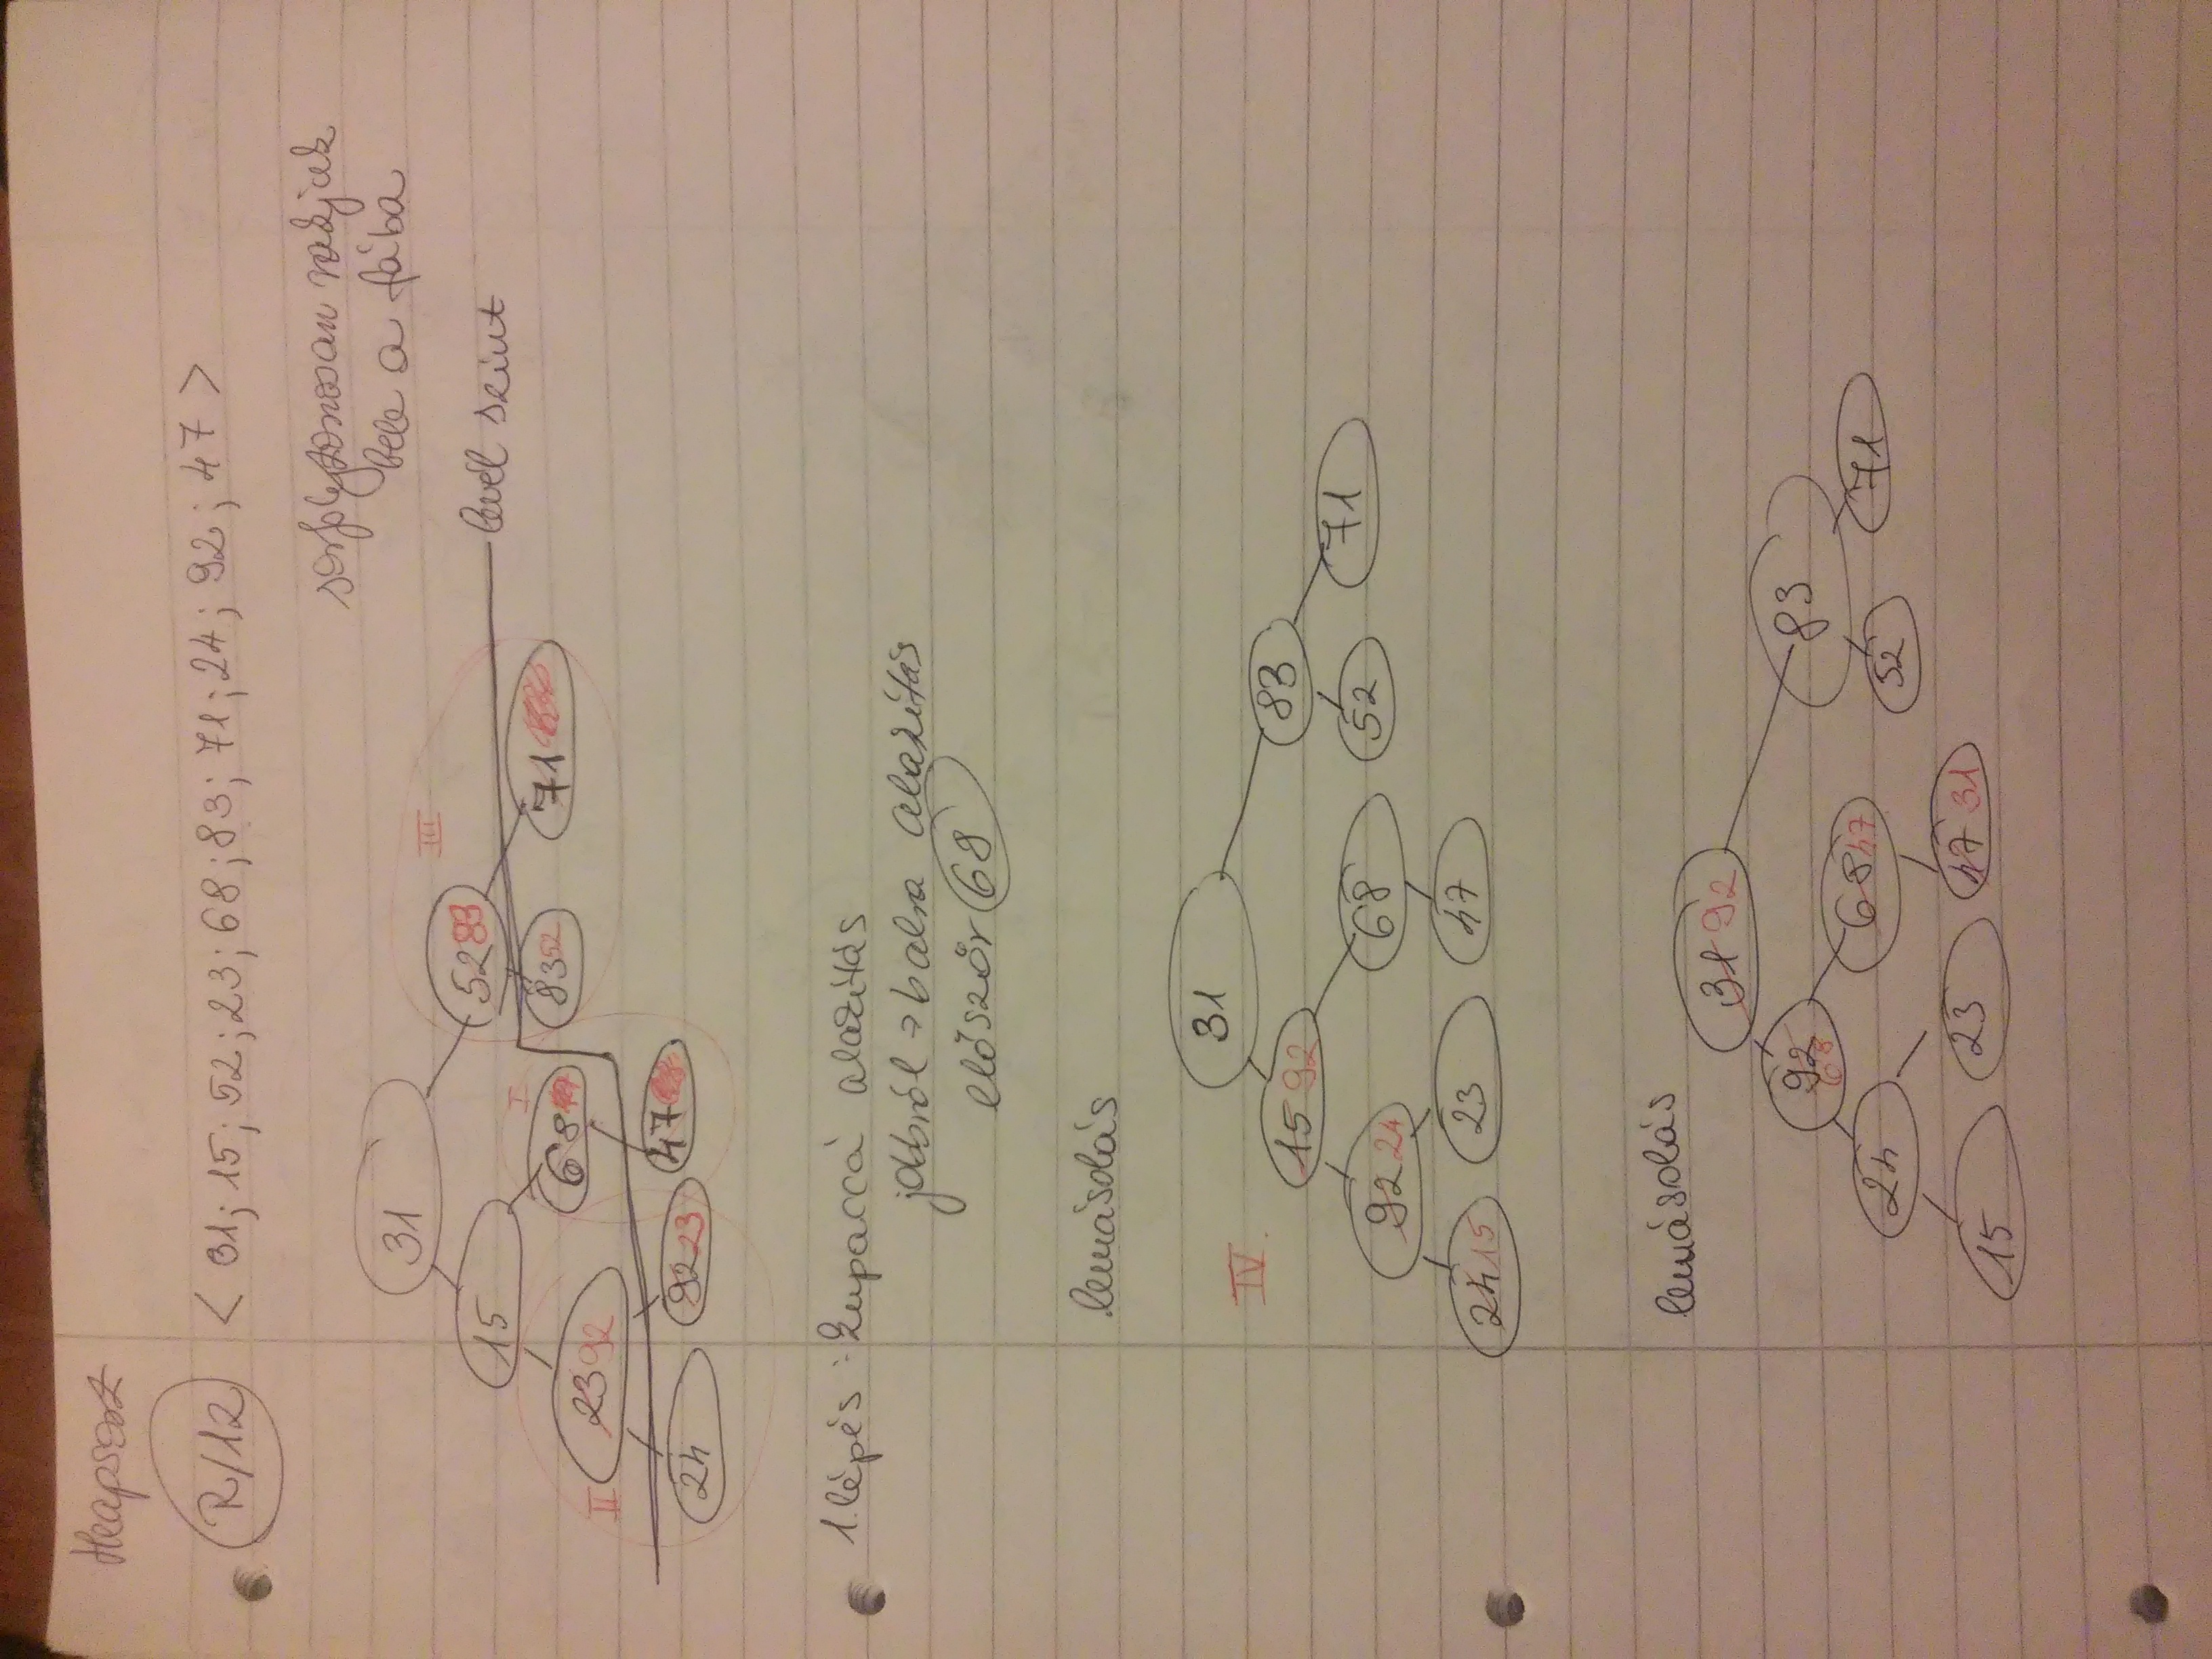 Heapsort
R/12 < 31; 15; 52; 23; 68; 83; 71; 24; 92; 47 >
sorfolytonosan rakjuk
bele a fába
31
III
52 83
15
levél szint
I
68
83 52
71
II
23 92
24
92 23
47
1. lépés: kupaccá alakítás
jobbról → balra alakítás
először 68
lemásolás
31
IV.
15 92
83
92 24
68
52
71
24 15
23
47
lemásolás
31 92
92 68
83
24
68 47
52
71
15
23
47 31